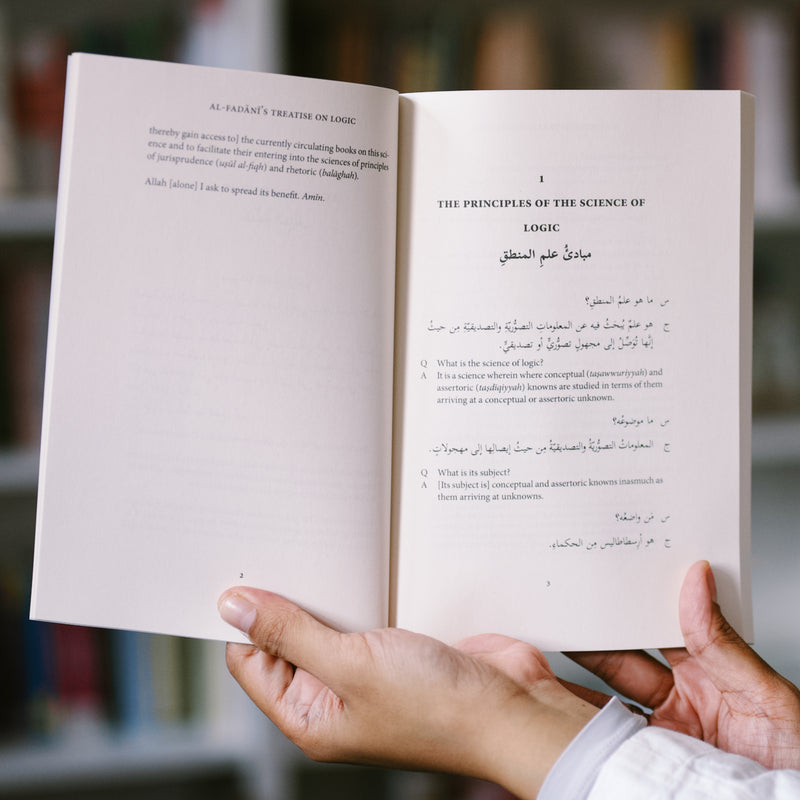 AL-FADĀNĪ'S TREATISE ON LOGIC
thereby gain access to] the currently circulating books on this sci-
ence and to facilitate their entering into the sciences of principles
of jurisprudence (uṣūl al-fiqh) and rhetoric (balāghah).
Allah [alone] I ask to spread its benefit. Amīn.
2
1
THE PRINCIPLES OF THE SCIENCE OF
LOGIC
مبادئُ علمِ المنطقِ
س ما هو علمُ المنطقِ؟
ج هو علمٌ يُبحثُ فيه عن المعلوماتِ التصوُّريّةِ والتصديقيّةِ مِن حيثُ
إنَّها تُوَصِّلُ إلى مجهولٍ تصوُّريٍّ أو تصديقيٍّ.
Q What is the science of logic?
A It is a science wherein where conceptual (taṣawwuriyyah) and
assertoric (taṣdīqiyyah) knowns are studied in terms of them
arriving at a conceptual or assertoric unknown.
س ما موضوعُه؟
ج المعلوماتُ التصوُّريّةُ والتصديقيّةُ مِن حيثُ إيصالِها إلى مهجولاتٍ.
Q What is its subject?
A [Its subject is] conceptual and assertoric knowns inasmuch as
them arriving at unknowns.
س مَن واضعُه؟
ج هو أرسطاطاليس مِن الحكماءِ.
3